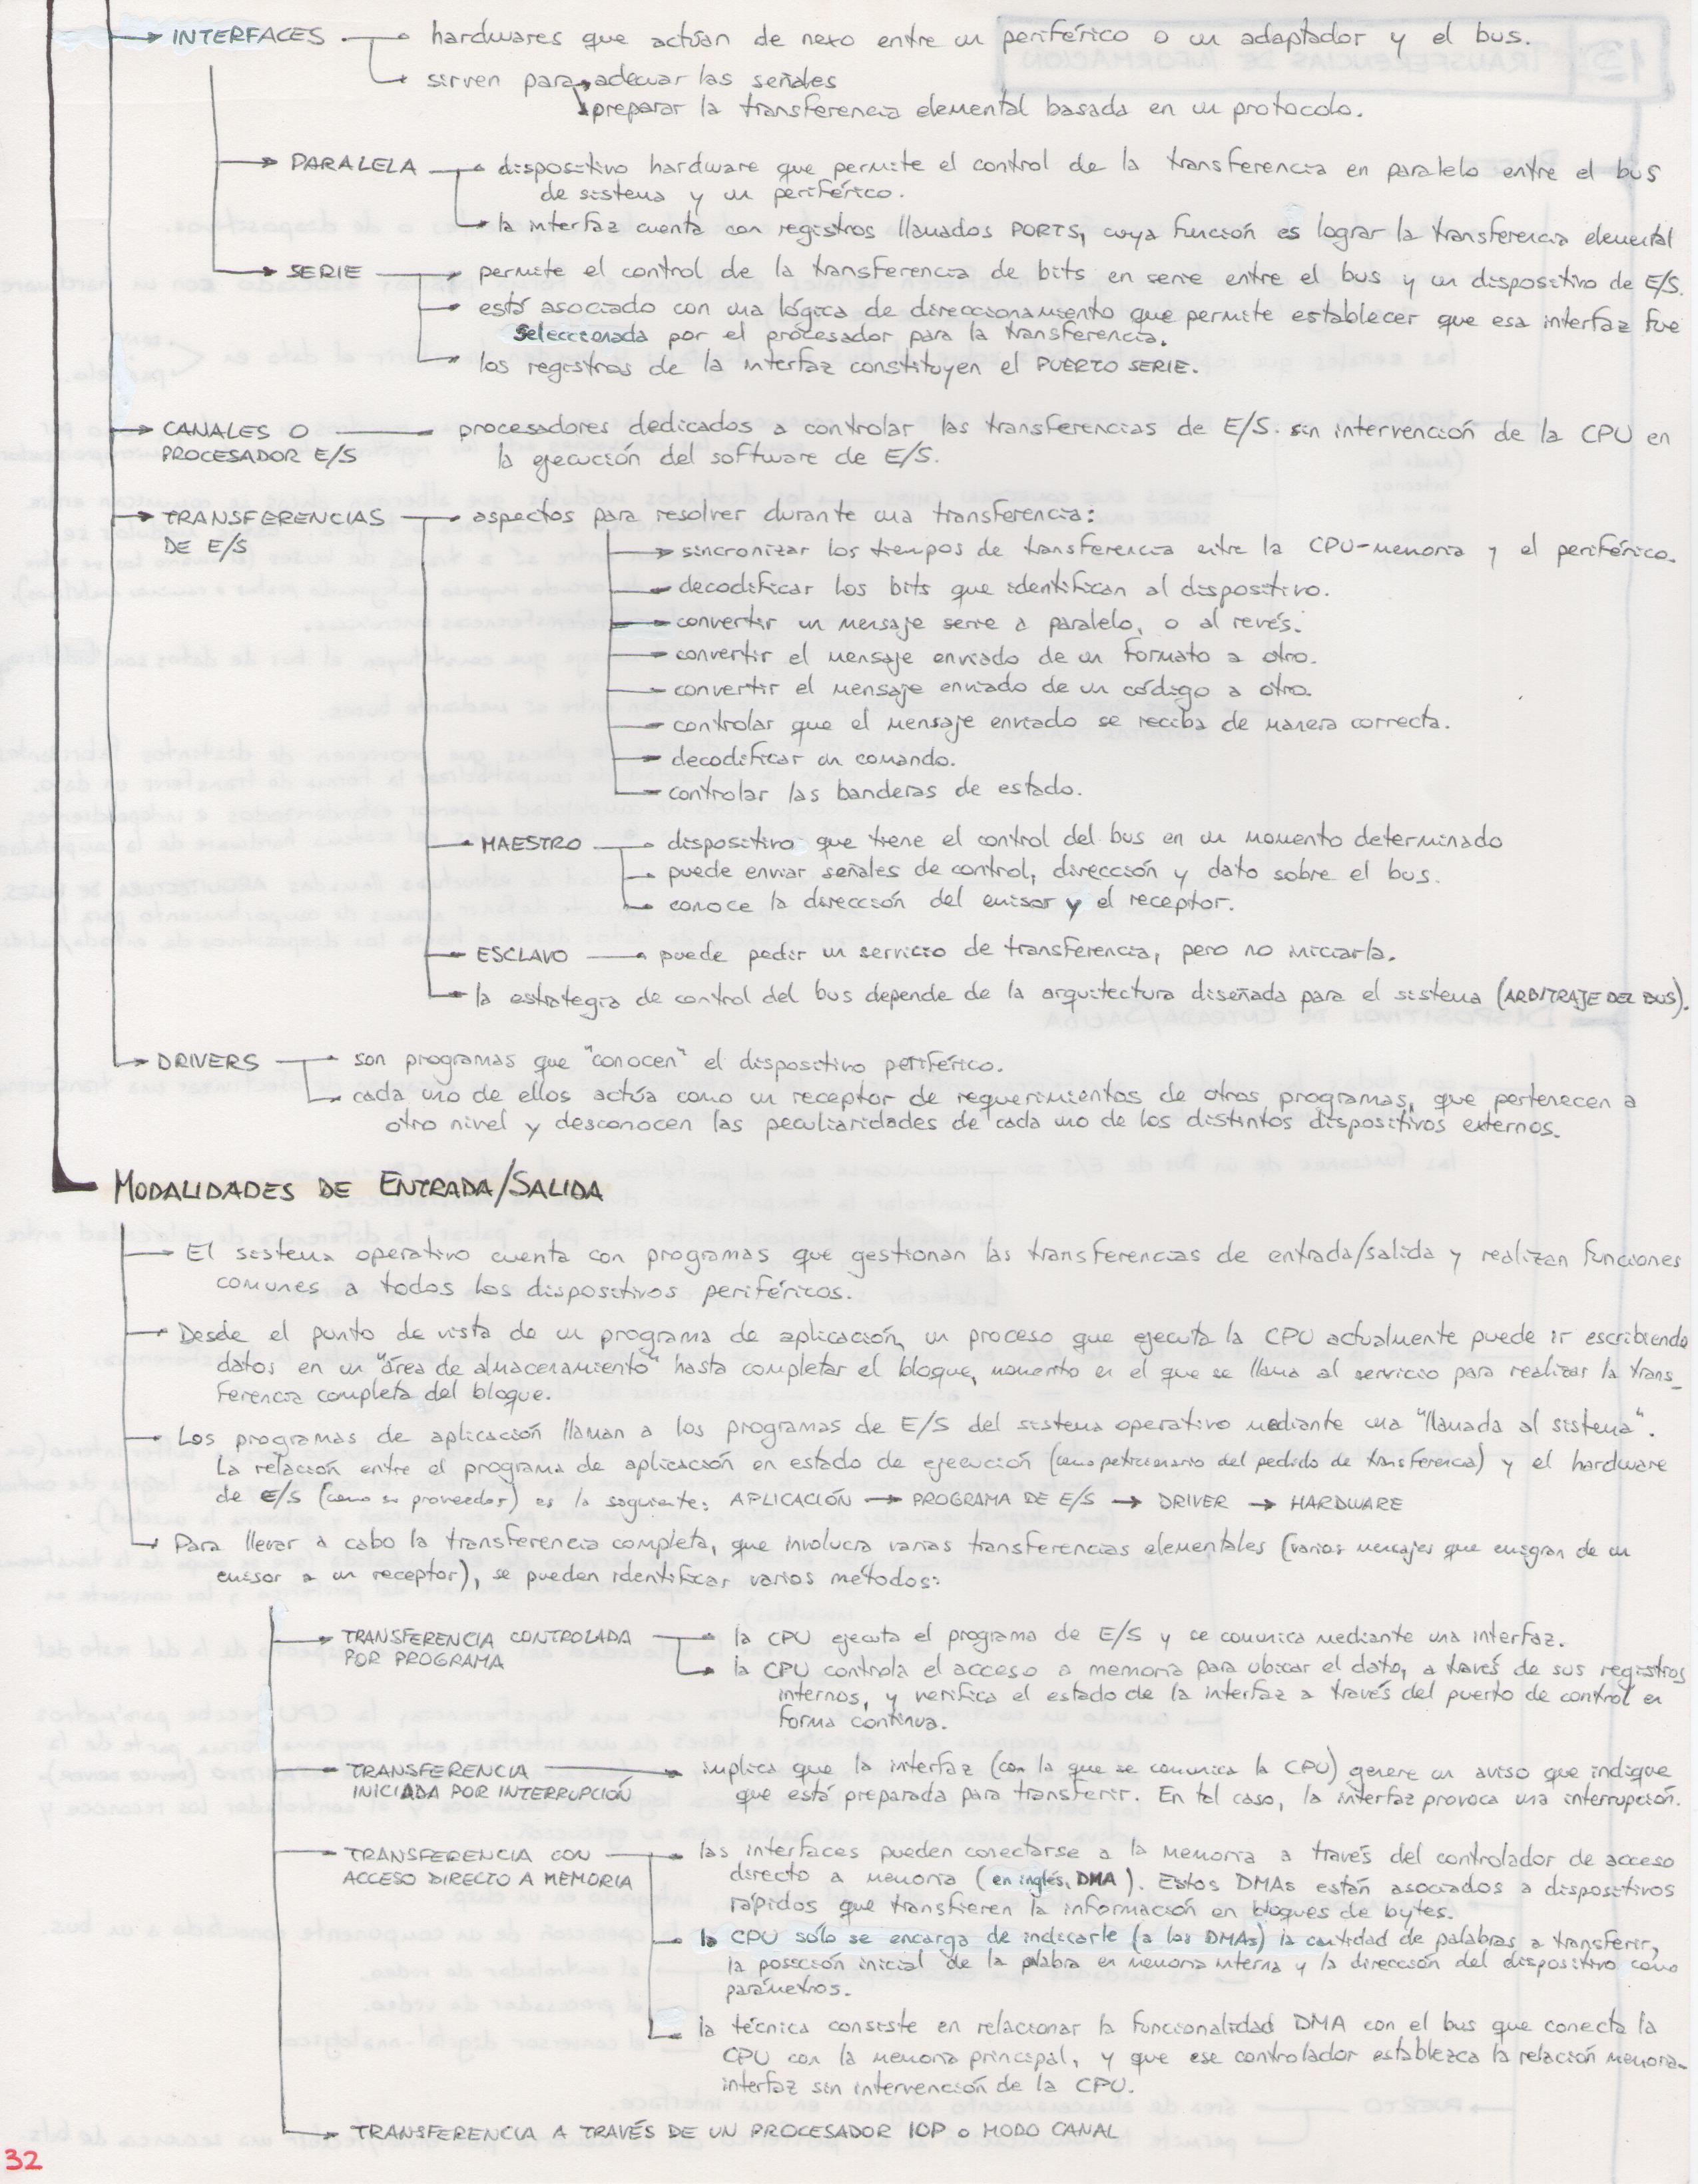 INTERFACES
hardwares que actúan de nexo entre un periférico o un adaptador y el bus.
sirven para adecuar las señales
preparar la transferencia elemental basada en un protocolo.
PARALELA
dispositivo hardware que permite el control de la transferencia en paralelo entre el bus
de sistema y un periférico.
la interfaz cuenta con registros llamados PORTS, cuya función es lograr la transferencia elemental
SERIE
permite el control de la transferencia de bits en serie entre el bus y un dispositivo de E/S.
está asociado con una lógica de direccionamiento que permite establecer que esa interfaz fue
seleccionada por el procesador para la transferencia.
los registros de la interfaz constituyen el PUERTO SERIE.
CANALES O
PROCESADOR E/S
procesadores dedicados a controlar las transferencias de E/S. sin intervención de la CPU en
la ejecución del software de E/S.
TRANSFERENCIAS
DE E/S
aspectos para resolver durante una transferencia:
sincronizar los tiempos de transferencia entre la CPU-memoria y el periférico.
decodificar los bits que identifican al dispositivo.
convertir un mensaje serie a paralelo, o al revés.
convertir el mensaje enviado de un formato a otro.
convertir el mensaje enviado de un código a otro.
controlar que el mensaje enviado se reciba de manera correcta.
decodificar un comando.
controlar las banderas de estado.
MAESTRO
dispositivo que tiene el control del bus en un momento determinado
puede enviar señales de control, dirección y dato sobre el bus.
conoce la dirección del emisor y el receptor.
ESCLAVO
puede pedir un servicio de transferencia, pero no iniciarla.
la estrategia de control del bus depende de la arquitectura diseñada para el sistema (ARBITRAJE DEL BUS).
DRIVERS
son programas que "conocen" el dispositivo periférico.
cada uno de ellos actúa como un receptor de requerimientos de otros programas, que pertenecen a
otro nivel y desconocen las peculiaridades de cada uno de los distintos dispositivos externos.
MODALIDADES DE ENTRADA/SALIDA
El sistema operativo cuenta con programas que gestionan las transferencias de entrada/salida y realizan funciones
comunes a todos los dispositivos periféricos.
Desde el punto de vista de un programa de aplicación, un proceso que ejecuta la CPU actualmente puede ir escribiendo
datos en un "área de almacenamiento" hasta completar el bloque, momento en el que se llama al servicio para realizar la trans_
ferencia completa del bloque.
Los programas de aplicación llaman a los programas de E/S del sistema operativo mediante una "llamada al sistema".
La relación entre el programa de aplicación en estado de ejecución (como peticionario del pedido de transferencia) y el hardware
de E/S (como su proveedor) es la siguiente: APLICACIÓN → PROGRAMA DE E/S → DRIVER → HARDWARE
Para llevar a cabo la transferencia completa, que involucra varias transferencias elementales (varios mensajes que emigran de un
emisor a un receptor), se pueden identificar varios métodos:
TRANSFERENCIA CONTROLADA
POR PROGRAMA
la CPU ejecuta el programa de E/S y se comunica mediante una interfaz.
la CPU controla el acceso a memoria para ubicar el dato, a través de sus registros
internos, y verifica el estado de la interfaz a través del puerto de control en
forma continua.
TRANSFERENCIA
INICIADA POR INTERRUPCIÓN
implica que la interfaz (con la que se comunica la CPU) genere un aviso que indique
que está preparada para transferir. En tal caso, la interfaz provoca una interrupción.
TRANSFERENCIA CON
ACCESO DIRECTO A MEMORIA
las interfaces pueden conectarse a la memoria a través del controlador de acceso
directo a memoria (en inglés, DMA). Estos DMAs están asociados a dispositivos
rápidos que transfieren la información en bloques de bytes.
la CPU sólo se encarga de indicarle (a los DMAs) la cantidad de palabras a transferir,
la posición inicial de la palabra en memoria interna y la dirección del dispositivo como
parámetros.
la técnica consiste en relacionar la funcionalidad DMA con el bus que conecta la
CPU con la memoria principal, y que ese controlador establezca la relación memoria-
interfaz sin intervención de la CPU.
TRANSFERENCIA A TRAVÉS DE UN PROCESADOR IOP o MODO CANAL
32